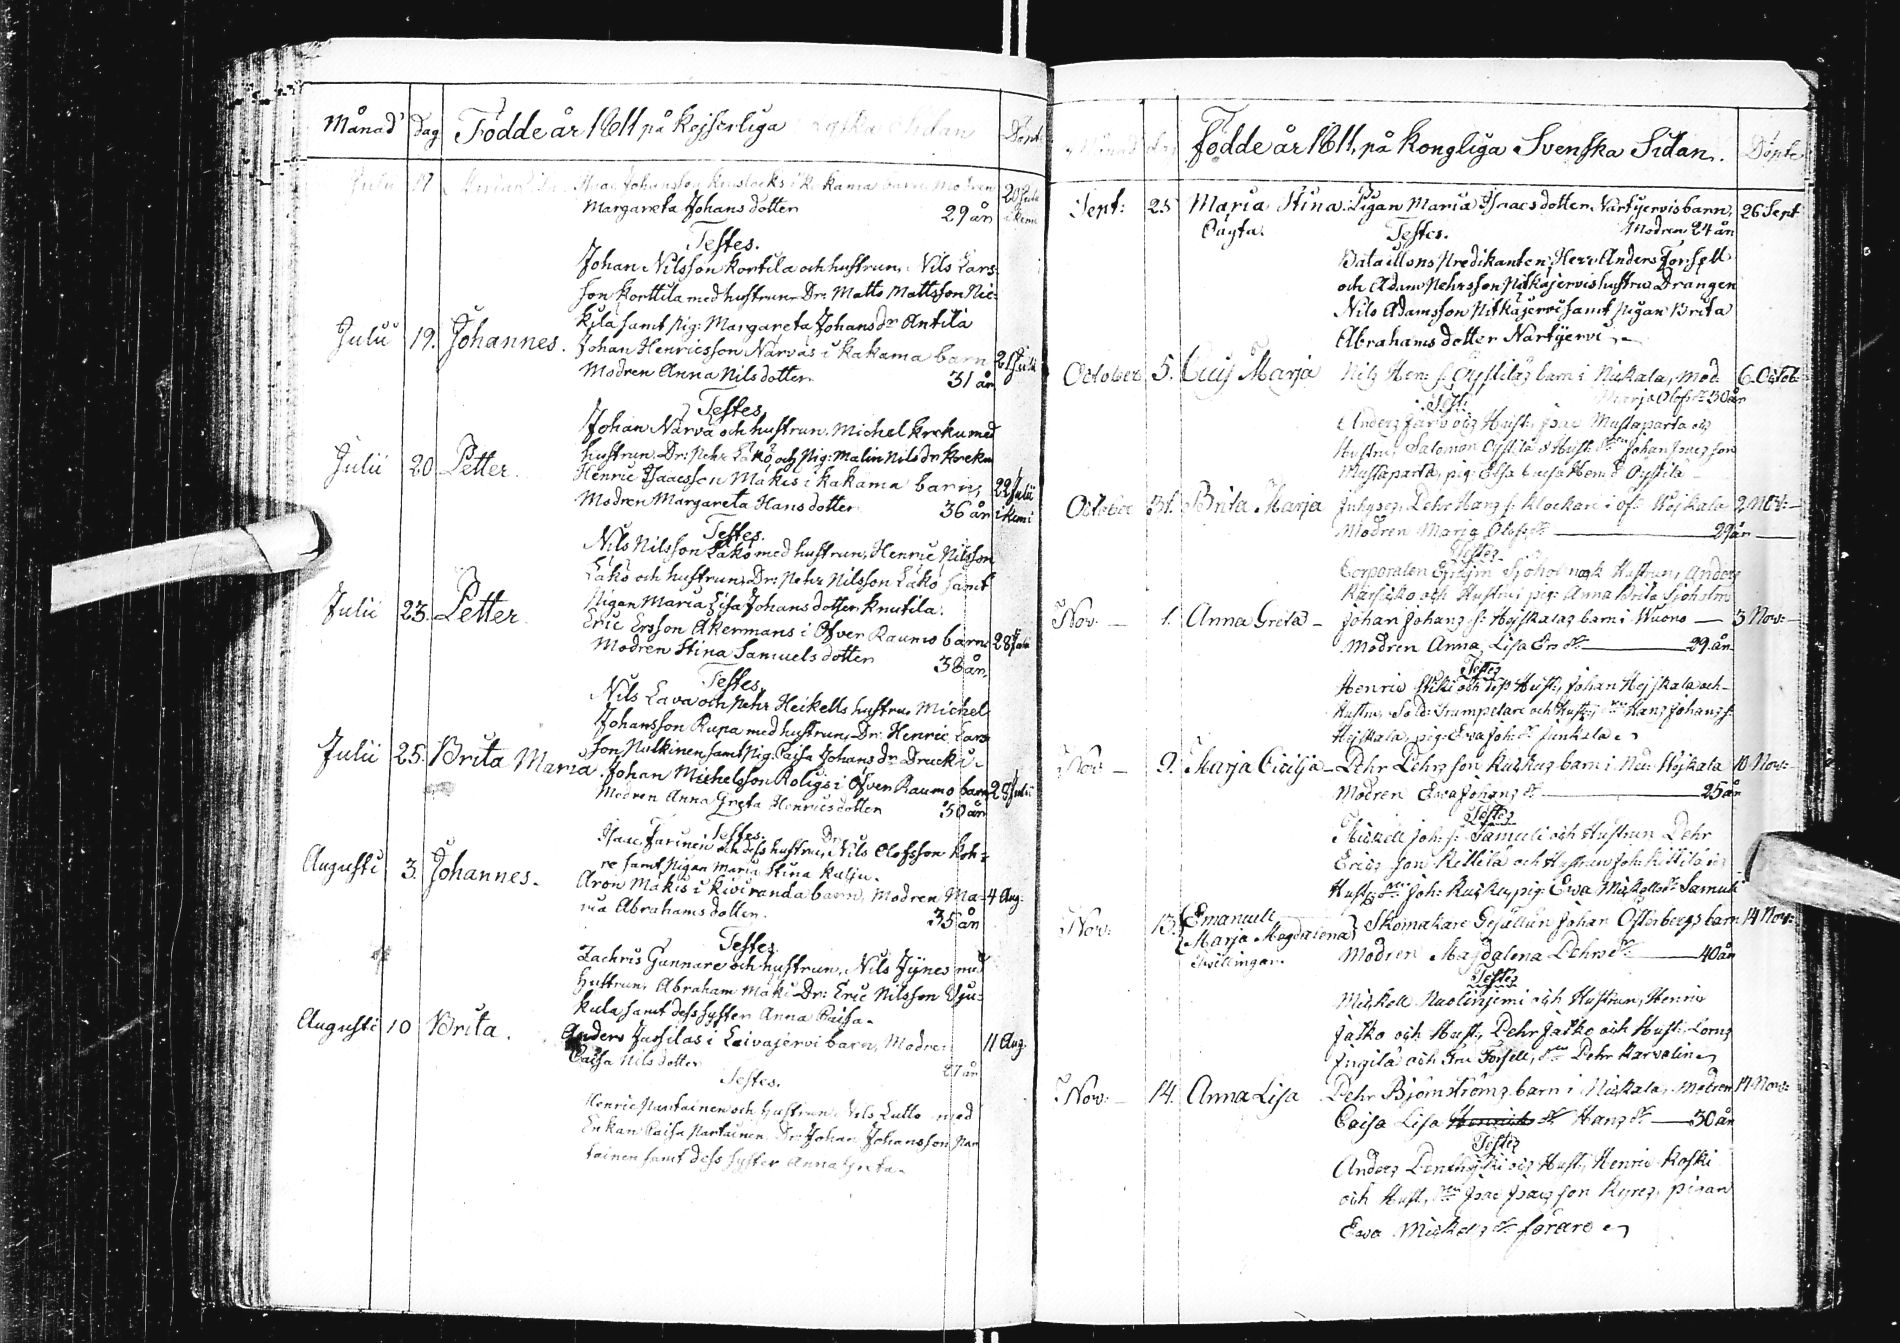 Månad Dag Födde år 1811 på Kejserliga Ryska Sidan Döpt
Julii 17 Isac Johansson i Kakama barn, Modren 20 Julii
Margareta Johansdotter 29 år i Kemi
Testes.
Johan Nilsson Korttila och hustrun, Nils Lars-
son Korttila med hustrun Dr: Matts Mattsson Nic-
kila samt Pig: Margareta Johans dr Antila
Julii 19. Johannes. Johan Henricsson Närväs i Kakama barn 21 Julii
Modren Anna Nilsdotter 31 år
Testes
Johan Närvä och hustrun, Michel Kreku med
hustrun, Dr: Pehr Läkö och Pig: Malin Nils dr Kreku
Julii 20 Petter. Henric Isacsson Mäkis i Kakama barn, 22 Julii
Modren Margareta Hansdotter 36 år i Kemi
Testes.
Nils Nilsson Läkö med hustrun, Henric Nilsson
Läkö och hustrun, Dr: Pehr Nilsson Läkö samt
Pigan Maria Lisa Johansdotter Knutila.
Julii 23. Petter. Eric Ersson Åkermans i Öfver Raumo barn 28 Julii
Modren Stina Samuelsdotter 38 år,
Testes
Nils Lava och Pehr Heikells hustru, Michel
Johansson Rupa med hustrun, Dr: Henric Lars
son Nulkinen samt Pig: Caisa Johans dr Drucki.
Julii 25. Brita Maria. Johan Michelsson Roligs i Öfver Raumo barn 28 Julii
Modren Anna Greta Henricsdotter 30 år
Testes.
Isaac Farinen och dess hustru, Dr Nils Olofsson Koh-
re samt Pigan Maria Stina Kalju.
Augusti 3. Johannes. Aron Mäkis i Kiviranda barn, Modren Ma- 4 Aug:
ria Abrahamsdotter. 35 år
Testes
Zachris Gunnare och hustrun, Nils Jynes med
hustrun, Abraham Mäki Dr: Eric Nilsson
kula samt dess syster Anna Caisa.
Augusti 10 Brita. Anders Jussilas i Laivajervi barn, Modren 11 Aug.
Caisa Nilsdotter 27 år
Testes.
Henric Partainen och hustrun, Nils Lutto med
Enkan Caisa Partainen, Dr Johan Johansson Par
tainen samt dess syster Anna Greta.
Månad Dag födde år 1811, på Kongliga Svenska Sidan. Döpte
Sept: 25 Maria Stina. Pigan Maria Isacsdotter Närtjervis barn, 26 Sept
Oägta. Testes. Modren 24 år
Bataillons Predikanten, Herr Anders Forssell
och Adam Pehrsson Pitkäjervis hustru Drängen
Nils Adamsson Pitkäjervi samt Pigan Brita
Abrahamsdotter Närtjervi
October 5. Marja Nils Hen: s: Oystilas barn i Nickala, Mod. 6 Octob:
Marja Olofs dr 30 år
Test:
Anders Järv o. Hust: Isac Mustaparta o
Hustru, Salomon Oystila o Hust: Dr Johan Isacsson
Mustaparta, pig: Elsa Caisa Hen: dr Oystila
October 31. Brita Marja Pehr Hans s: Klockare i Öf: Wojkala 2 Nov:
Modren Marja Olofs dr 29 år
Testes
Corporalen Sjöholm o Hustrun, Anders
Karsiko och Hustru pig: Anna Brita Sjöholm
Nov: 1. Anna Greta Johan Johans s: Hejskalas barn i Wuono 3 Nov:
Modren Anna Lisa Ers dr 29 år
Testes
Henric och dess Hust:, Johan Hejskala och
Hustru, Sold: Trumpetare och Hust: Dr Hans Johans s:
Hejskala, pig: Ewa Joh: dr Junkala
Nov 9. Marja Cicilja Pehr Pehrs son Kuskus barn i Ned: Wojkala 10 Nov:
Modren Ewa Johans dr 25 år
Testes
Mickell Joh: s: Samuli och Hustrun Pehr
Erics son Kettilä och Hustrun
Hust: Dr Joh: Kusku, pig: Ewa Mickells dr Samuli
Nov: 13. Emanuell Skomakare Gesällen Johan Österbergs barn 14 Nov:
Marja Magdalena Modren Magdalena Pehrs dr 40 år
Tvillingar. Testes
Mickell Naolinjemi och Hustrun, Henric
Jatko och Hust:, Pehr Jatko och Hust: Lorens
Ingila och Fru Forsell, Dr Pehr Karvalin
Nov: 14. Anna Lisa Pehr Björnströms barn i Nickala, Modren 17 Nov:
Caisa Lisa Henrics dr Hans dr 30 år
Testes
Anders och Hust: Henric Koski
och Hust:, Dr Isac Isacsson Kyres, pigan
Ewa Mickels dr Förare